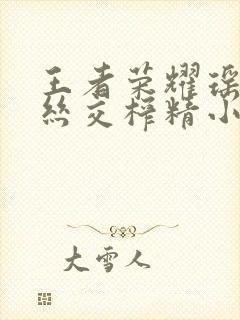 王者荣耀瑶
丝交榨精小
大雪人